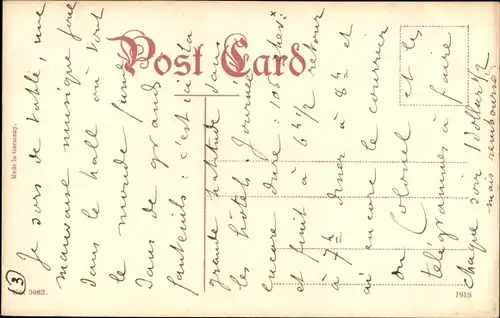 Post Card
Made in Germany.
3062.
1918
3
Je sors de table, une
mauvaise musique joue
dans le hall où tout
le monde fume
dans de grands
fauteuils : c'est ici la
grande habitude dans
les hôtels. Journée
encore dure : 106 chev:
et finit à 6h 1/2 retour
à 7h dîner à 8h et
ai encore le courrier
du Colonel et les
télégrammes à faire
chaque soir 1 dollar 1/2
mais remboursé